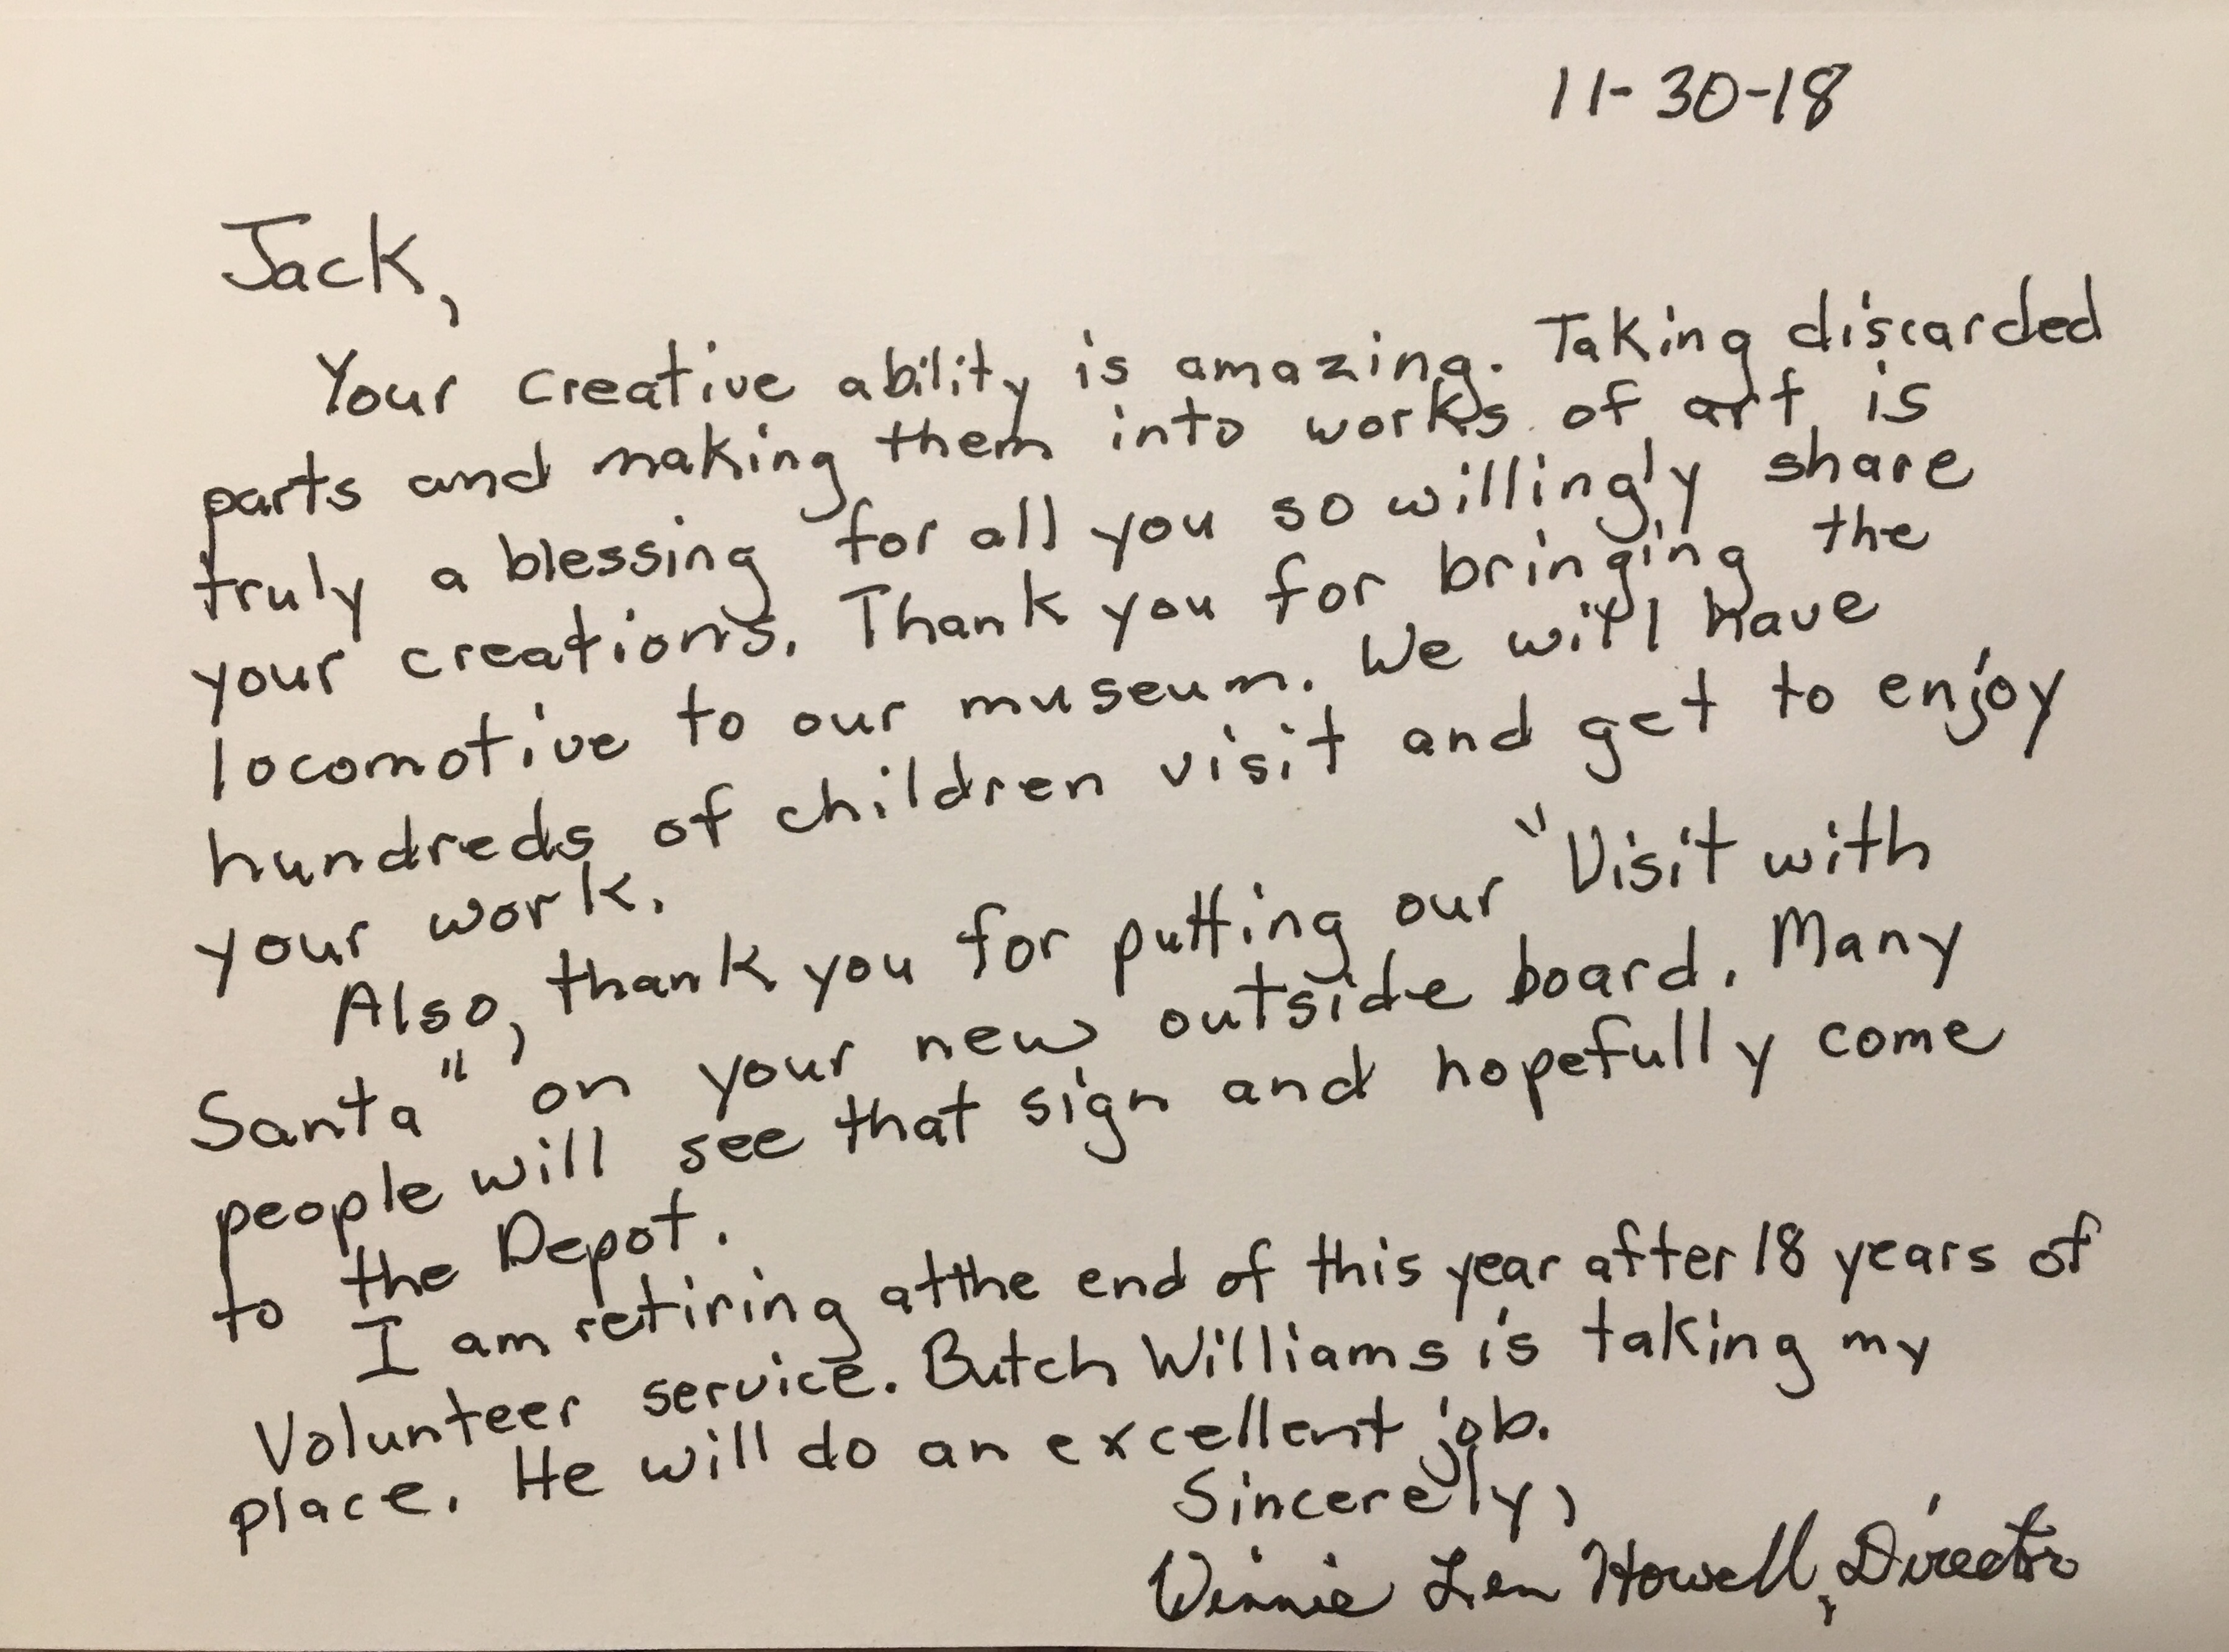 11-30-18
Jack,
Your creative ability is amazing. Taking discarded
parts and making them into works of art is
truly a blessing for all you so willingly share
your creations. Thank you for bringing the
locomotive to our museum. We will have
hundreds of children visit and get to enjoy
your work.
Also, thank you for putting our "Visit with
Santa" on your new outside board. Many
people will see that sign and hopefully come
to the Depot.
I am retiring at the end of this year after 18 years of
Volunteer service. Butch Williams is taking my
place. He will do an excellent job.
Sincerely,
Howell, Director